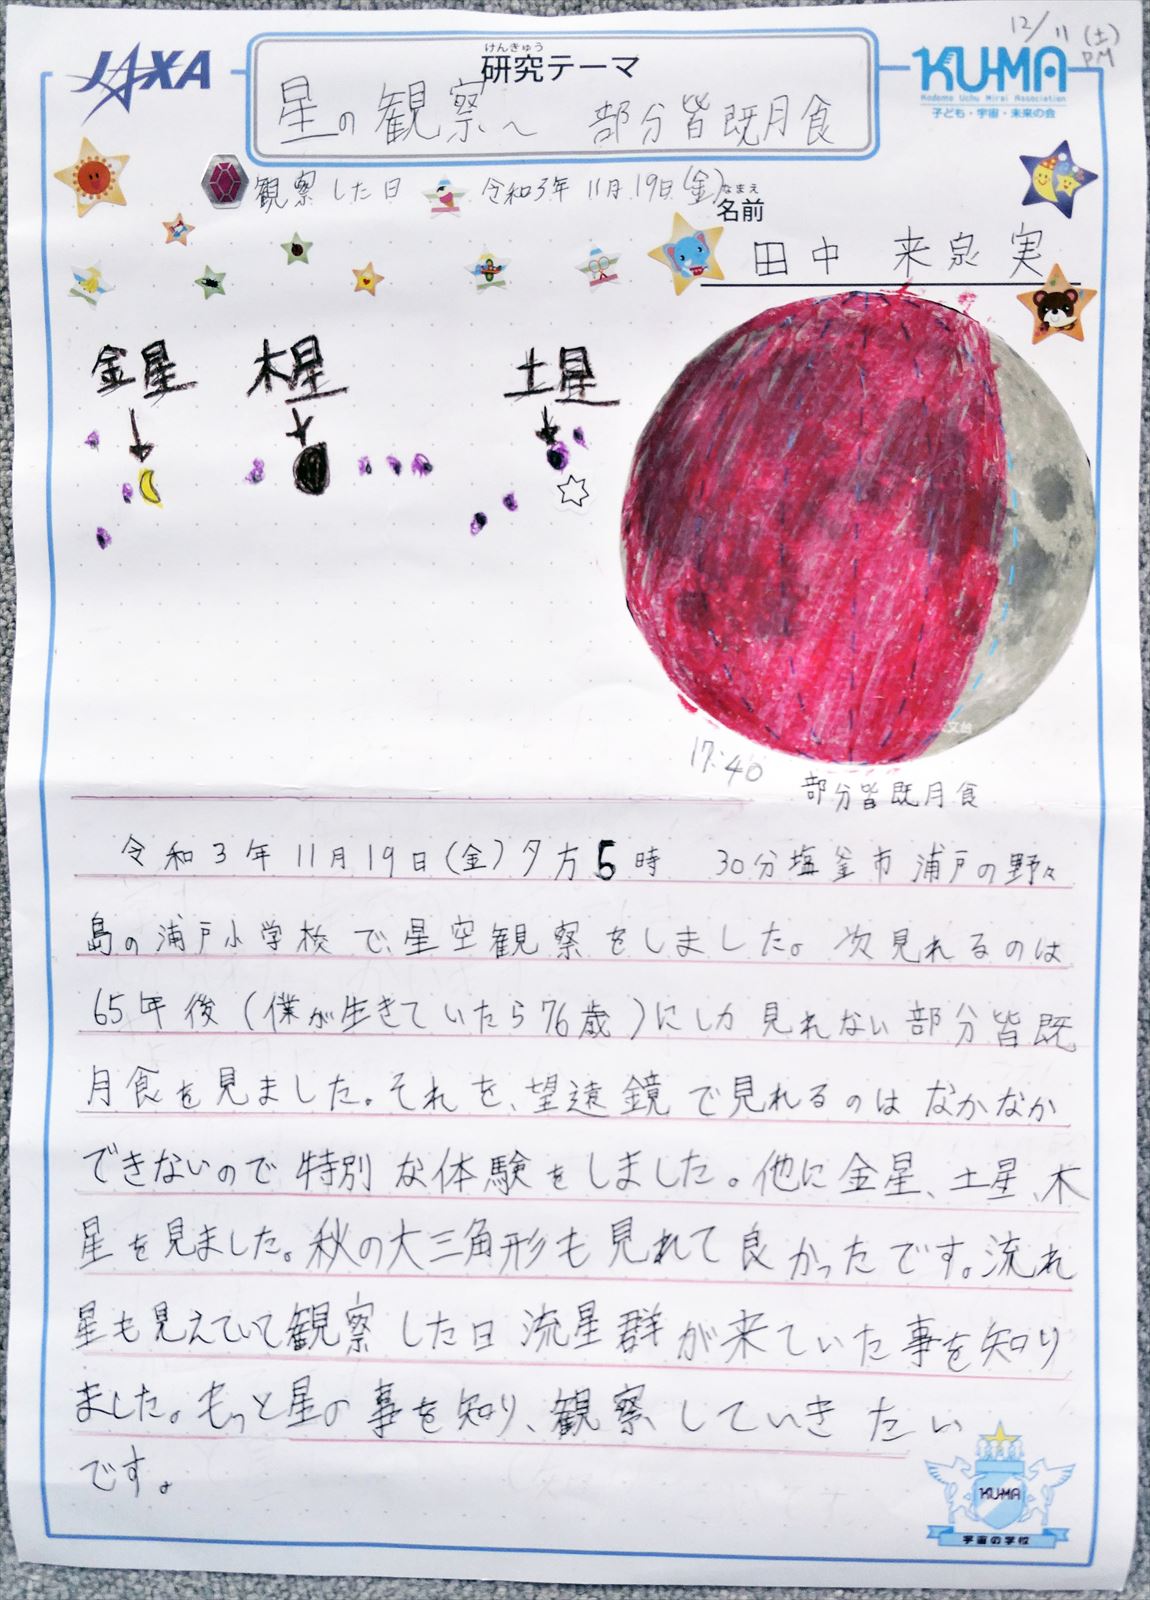 12/11(土)
PM
JAXA
けんきゅう
研究テーマ
KU-MA
Kodomo Uchu Mirai Association
子ども・宇宙・未来の会
星の観察〜 部分皆既月食
観察した日 令和3年11月19日(金)
なまえ
名前
田中 来泉実
金星 木星 土星
17:40
部分皆既月食
令和3年11月19日(金)夕方5時 30分塩釜市浦戸の野々
島の浦戸小学校で、星空観察をしました。次見れるのは
65年後(僕が生きていたら76歳)にしか見れない部分皆既
月食を見ました。それを、望遠鏡で見れるのはなかなか
できないので特別な体験をしました。他に金星、土星、木
星を見ました。秋の大三角形も見れて良かったです。流れ
星も見えていて観察した日流星群が来ていた事を知り
ました。もっと星の事を知り、観察していきたい
です。
KU-MA
宇宙の学校